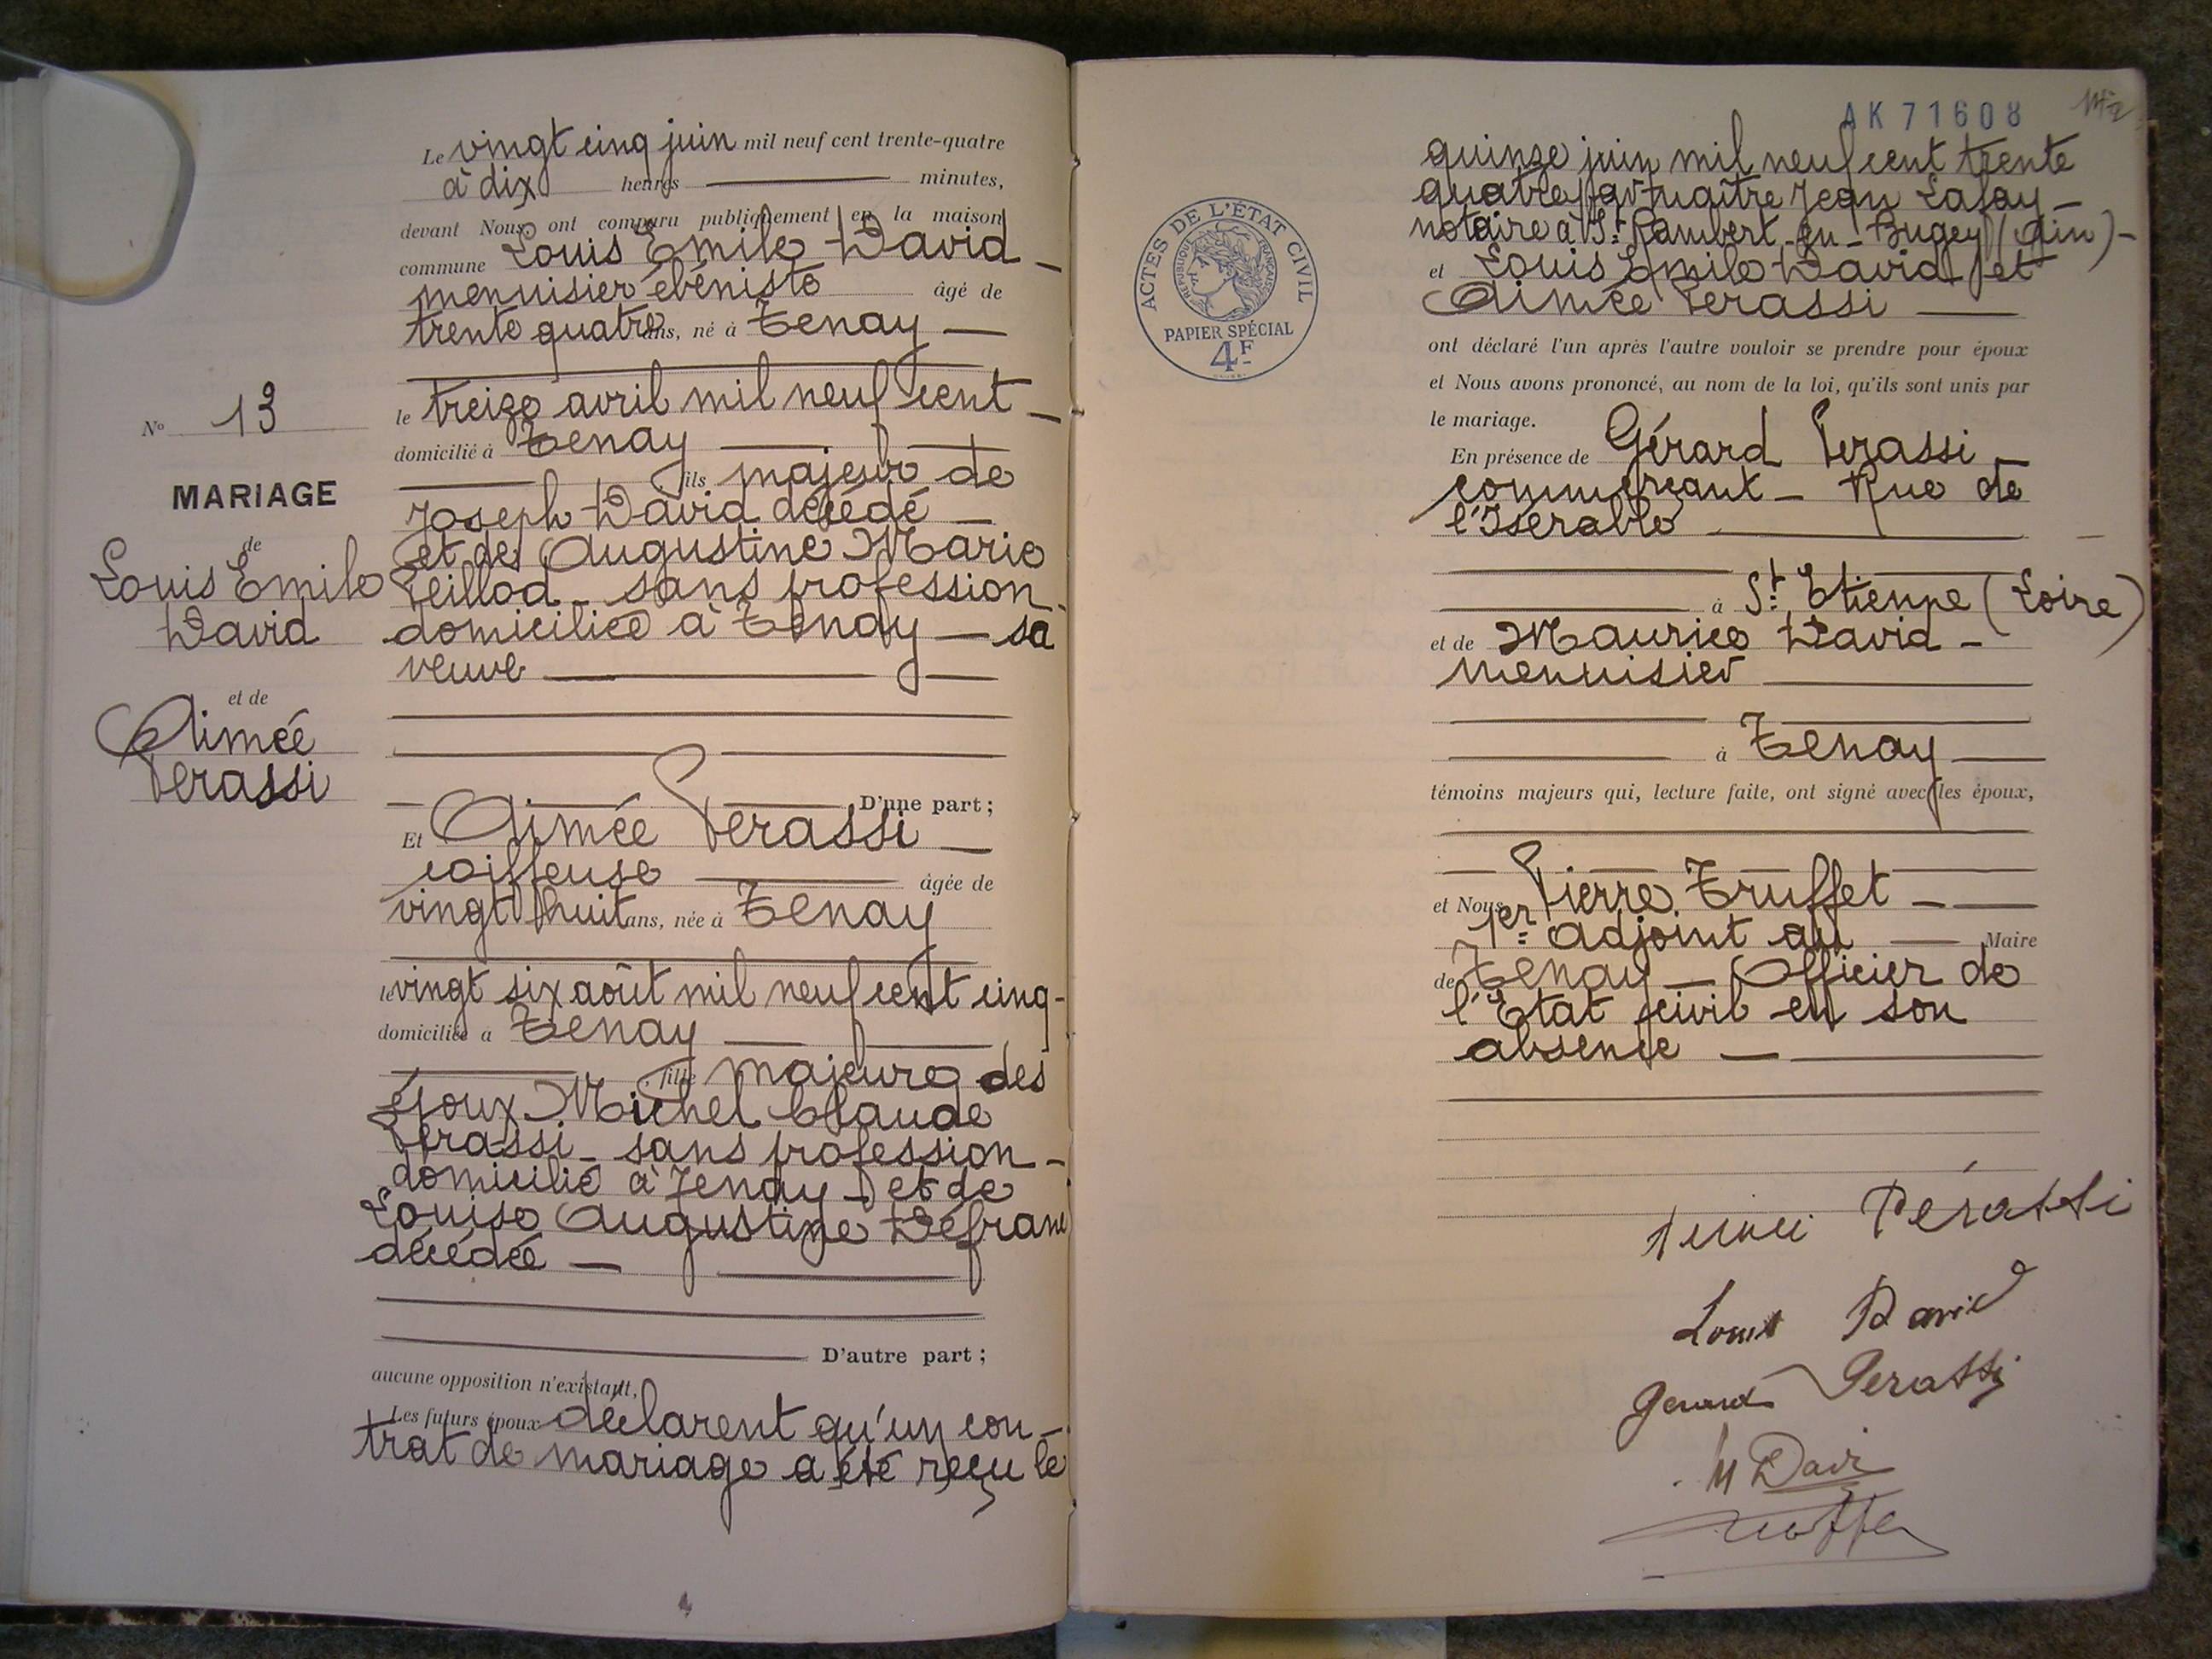 Le vingt cinq juin mil neuf cent trente-quatre
à dix heures minutes,
devant Nous, ont comparu publiquement en la maison
commune Louis Emile David
menuisier ébéniste âgé de
trente quatre ans, né à Tenay
le treize avril mil neuf cent
domicilié à Tenay
fils majeur de
Joseph David décédé
et de Augustine Marie
sans profession
domiciliée à Tenay sa
veuve
N° 13
MARIAGE
de
Louis Emile
David
et de
Aimée
Perassi
D'une part;
Et Aimée Perassi
coiffeuse âgée de
vingt huit ans, née à Tenay
le vingt six août mil neuf cent cinq
domiciliée à Tenay
, fille majeure des
époux Michel Claude
Perassi sans profession
domicilié à Tenay et de
Louise Augustine Défranc
décédée
D'autre part;
aucune opposition n'existant,
Les futurs époux déclarent qu'un con-
trat de mariage a été reçu le
AK 71608
quinze juin mil neuf cent trente
quatre par maître Jean Lafay
notaire à St Rambert-en-Bugey (Ain)
et Louis Emile David et
Aimée Perassi
ont déclaré l'un après l'autre vouloir se prendre pour époux
et Nous avons prononcé, au nom de la loi, qu'ils sont unis par
le mariage.
En présence de Gérard Perassi
commerçant - Rue de
l'Isérable
à St Etienne (Loire)
et de Maurice David -
menuisier
à Tenay
témoins majeurs qui, lecture faite, ont signé avec les époux,
et Nous Pierre Truffet
1er adjoint au Maire
de Tenay - Officier de
l'Etat civil en son
absence
ACTES DE L'ÉTAT CIVIL
RÉPUBLIQUE FRANÇAISE
PAPIER SPÉCIAL
4F
Pérassi
Louis David
Gerard Perassi
M David